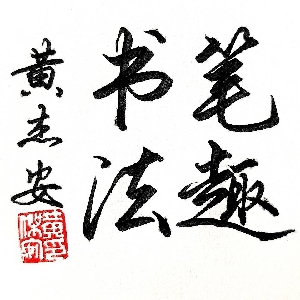 笔趣
书法
黄杰安